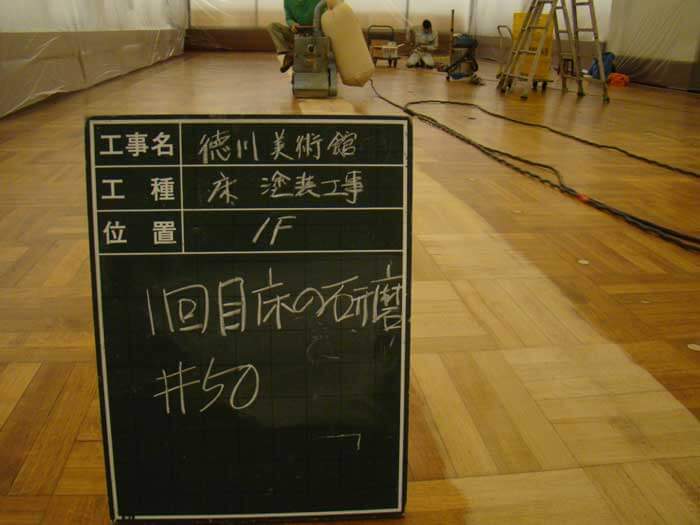 工事名 徳川美術館
工種 床 塗装工事
位置 1F
1回目床の研磨
#50